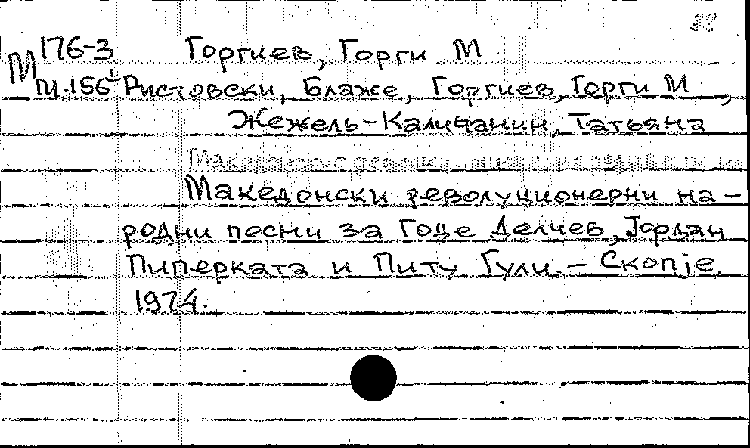 М 176-3 Горгиев, Горги М
Ристовски, Блаже, Горгиев, Горги М,
Жежель-Каличанин, Татьяна
Македонски револуционерни на-
родни песни за Гоце Делчев, Јордан
Пиперката и Питу Гули. - Скопје.
1974.